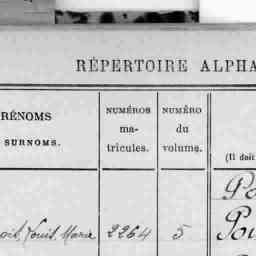 RÉPERTOIRE ALPHA
RÉNOMS
SURNOMS.
NUMÉROS
ma-
tricules.
NUMÉRO
du
volume.
(Il doit
Louis, Marie 2264 5